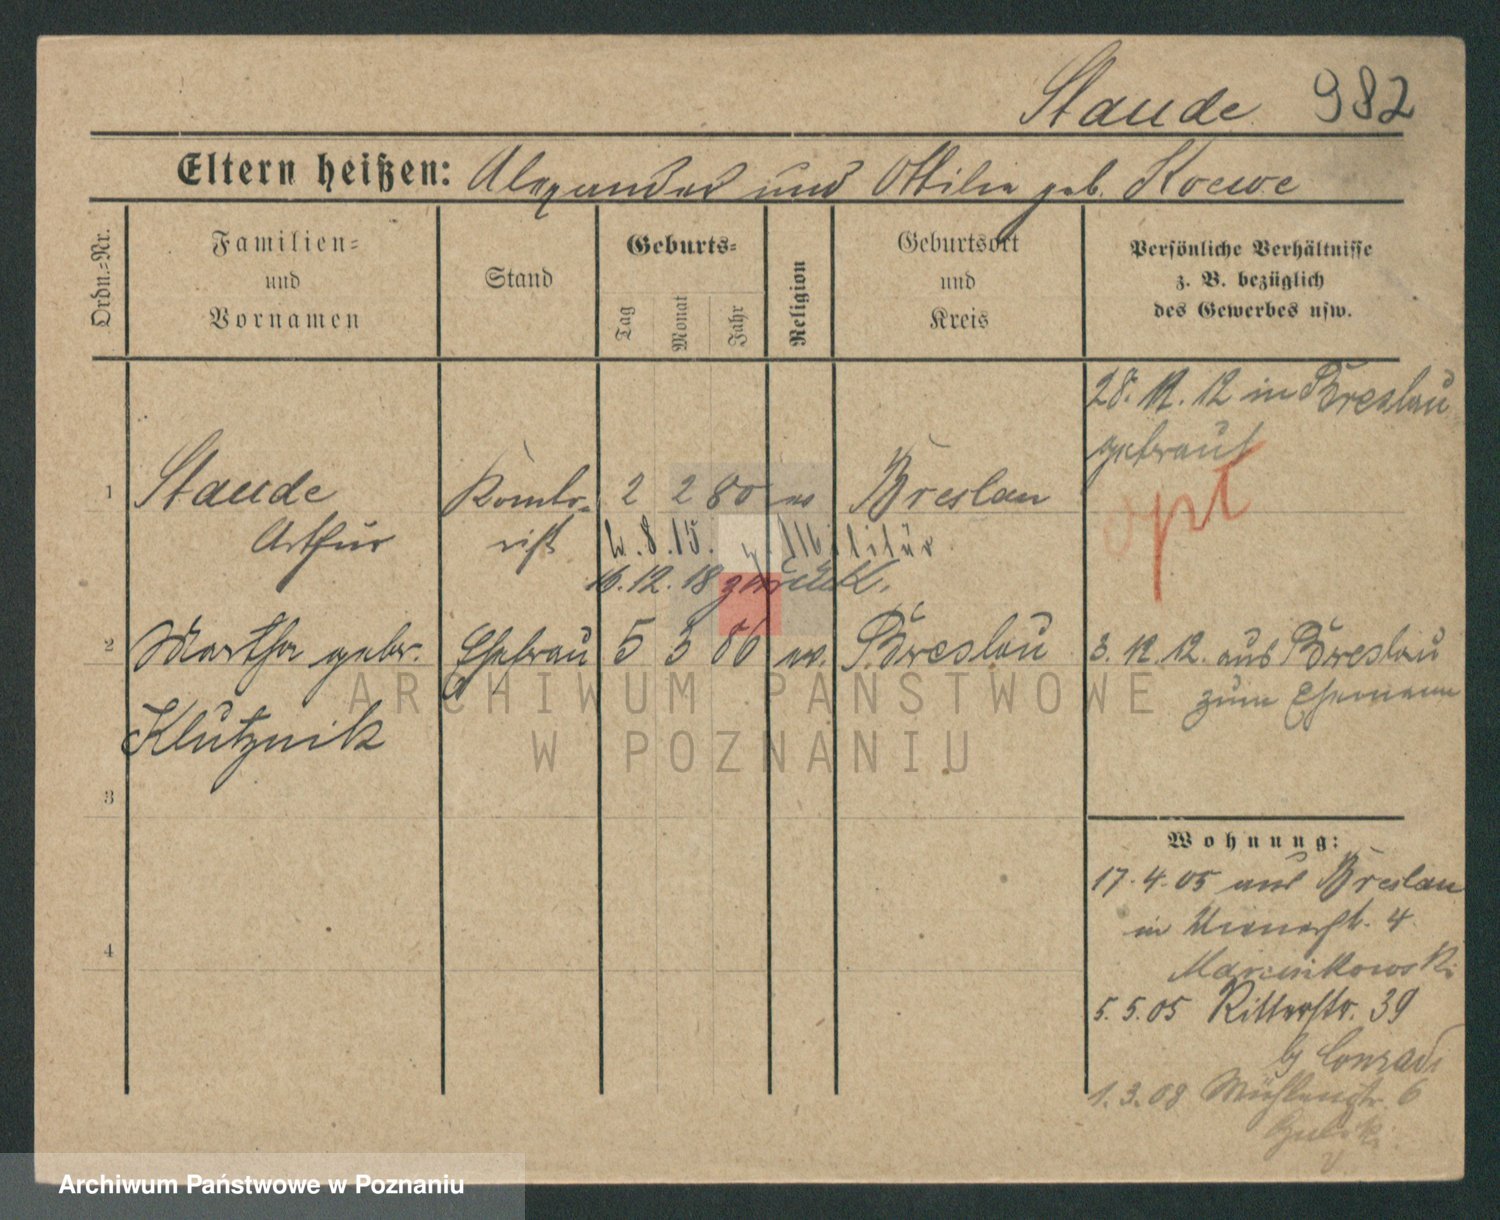 Staude 982
Eltern heißen: Alexander und Ottilie geb. Koewe
Ordn.-Nr.
Familien-
und
Vornamen
Stand
Geburts-
Tag
Monat
Jahr
Religion
Geburtsort
und
Kreis
Persönliche Verhältnisse
z. B. bezüglich
des Gewerbes usw.
28. 12. 12 in Breslau
getraut
opt
1 Staude Kontor- 2 2 80 ev Breslau
Arthur rist
8. 15. z. Militür
16. 12. 18 zurück.
2 Martha gebr. Ehefrau 5 3 86 ev. Breslau
Klutznik
3. 12. 12. aus Breslau
zum Ehemann
3
4
Wohnung:
17. 4. 05 aus Breslau
in 4
Marcinkowski
5. 5. 05 Ritterstr. 39
by Conrad
1. 3. 08 Mühlenstr. 6
ARCHIWUM PAŃSTWOWE
W POZNANIU
Archiwum Państwowe w Poznaniu